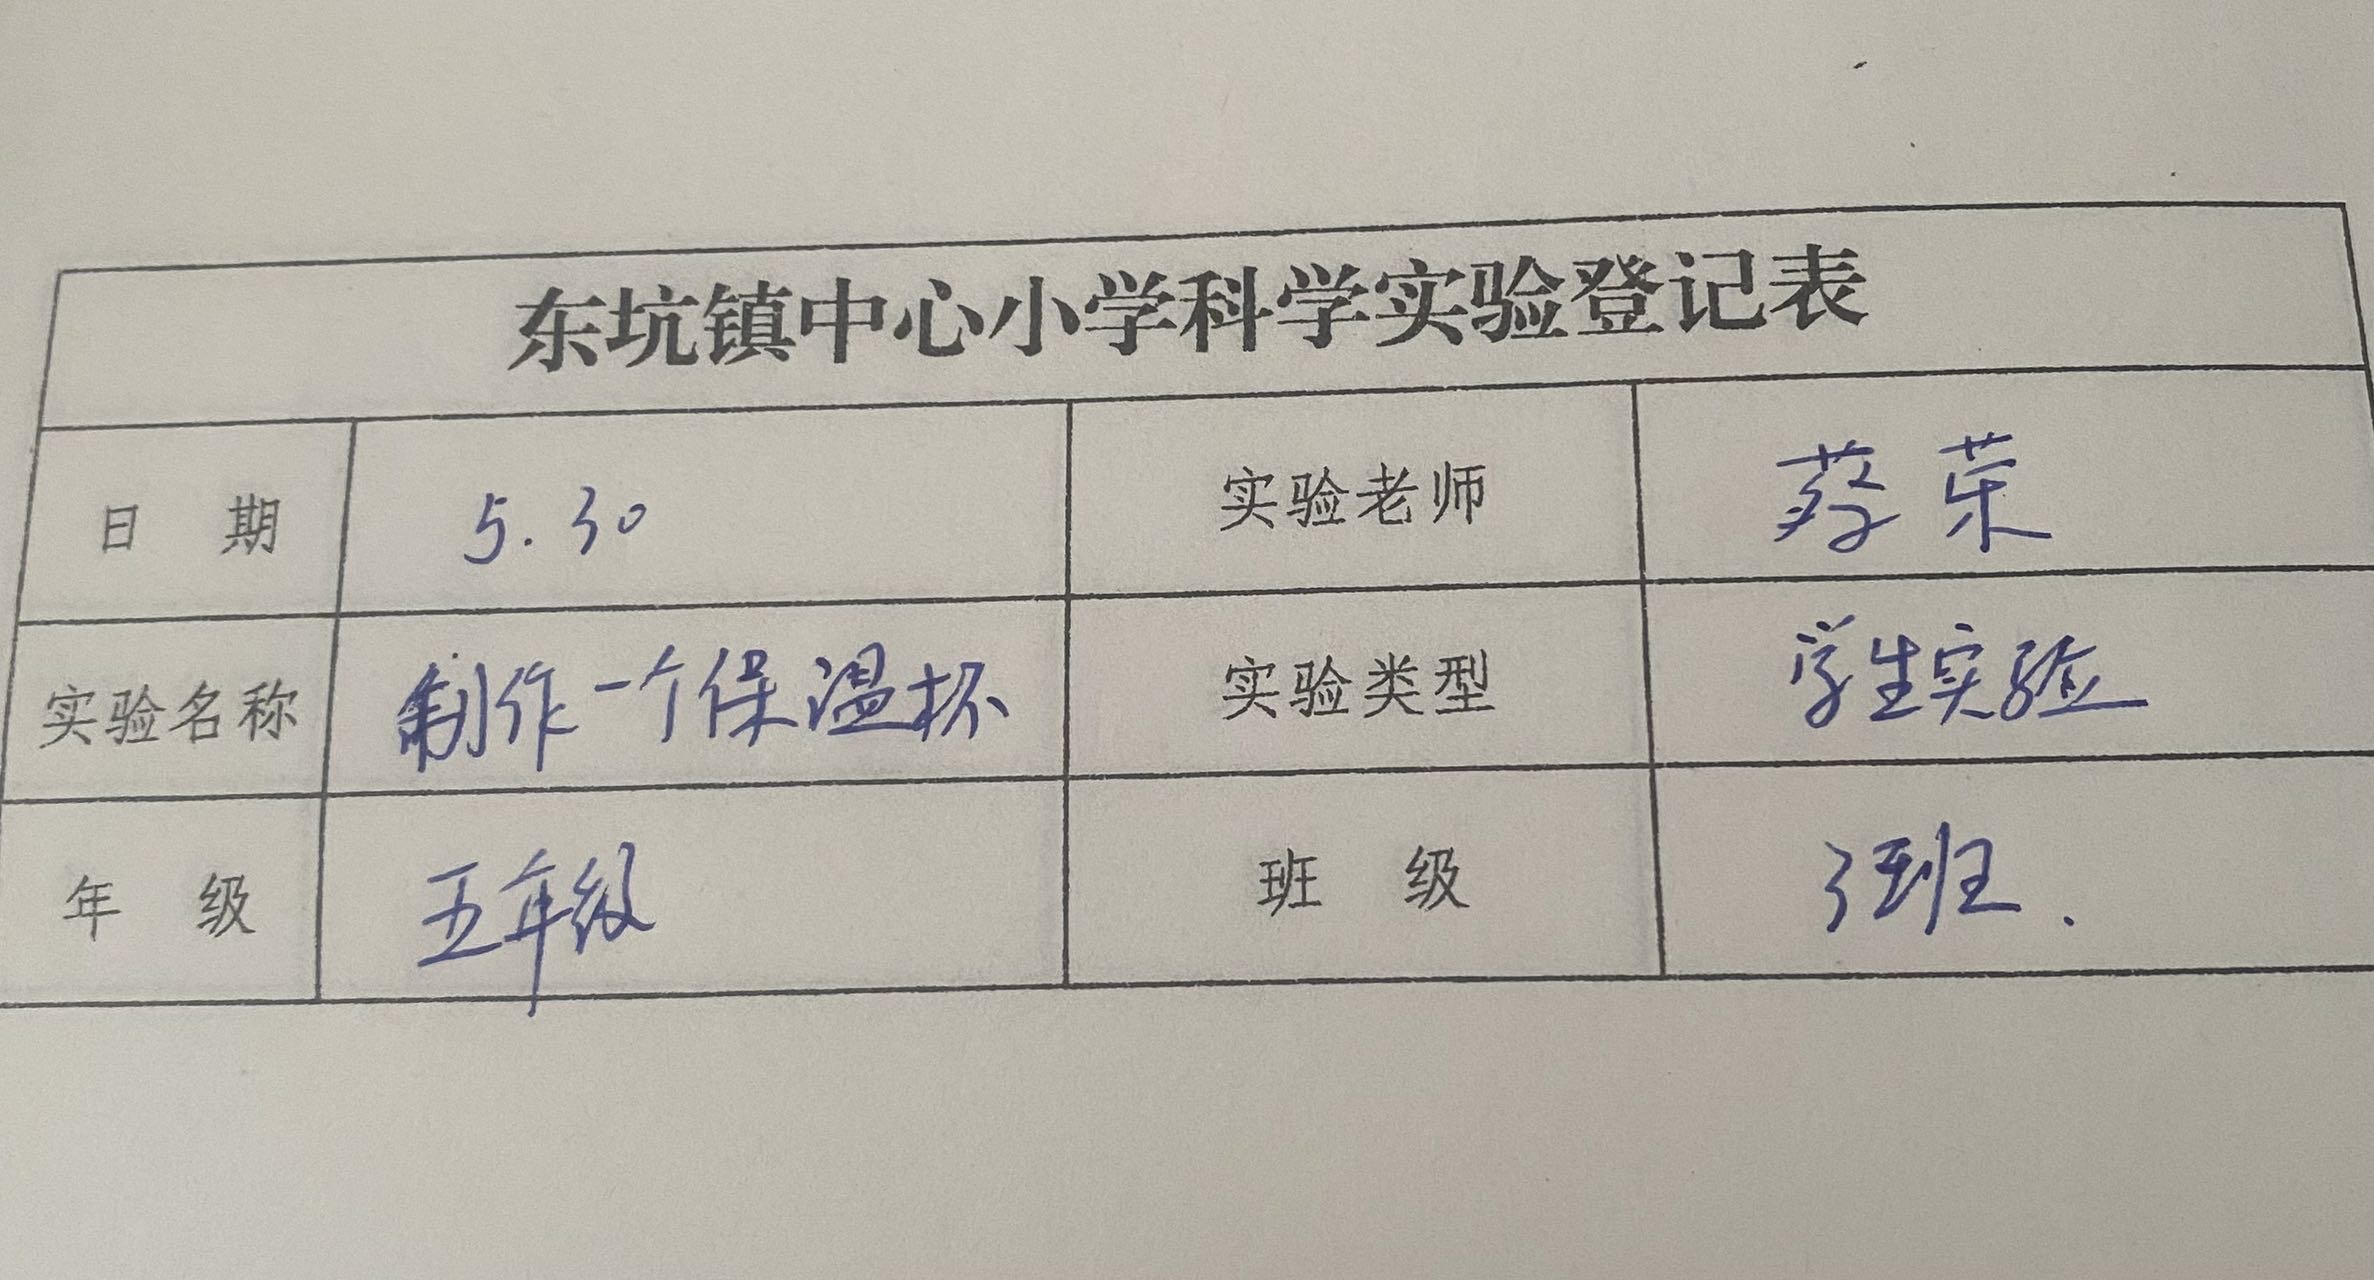 东坑镇中心小学科学实验登记表
日 期 5.30 实验老师 蔡荣
实验名称 制作一个保温杯 实验类型 学生实验
年 级 五年级 班 级 3班.